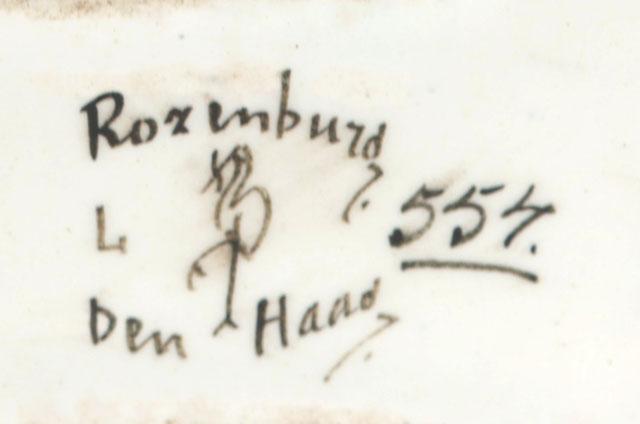 Rozenburg
L
554.
Den Haag